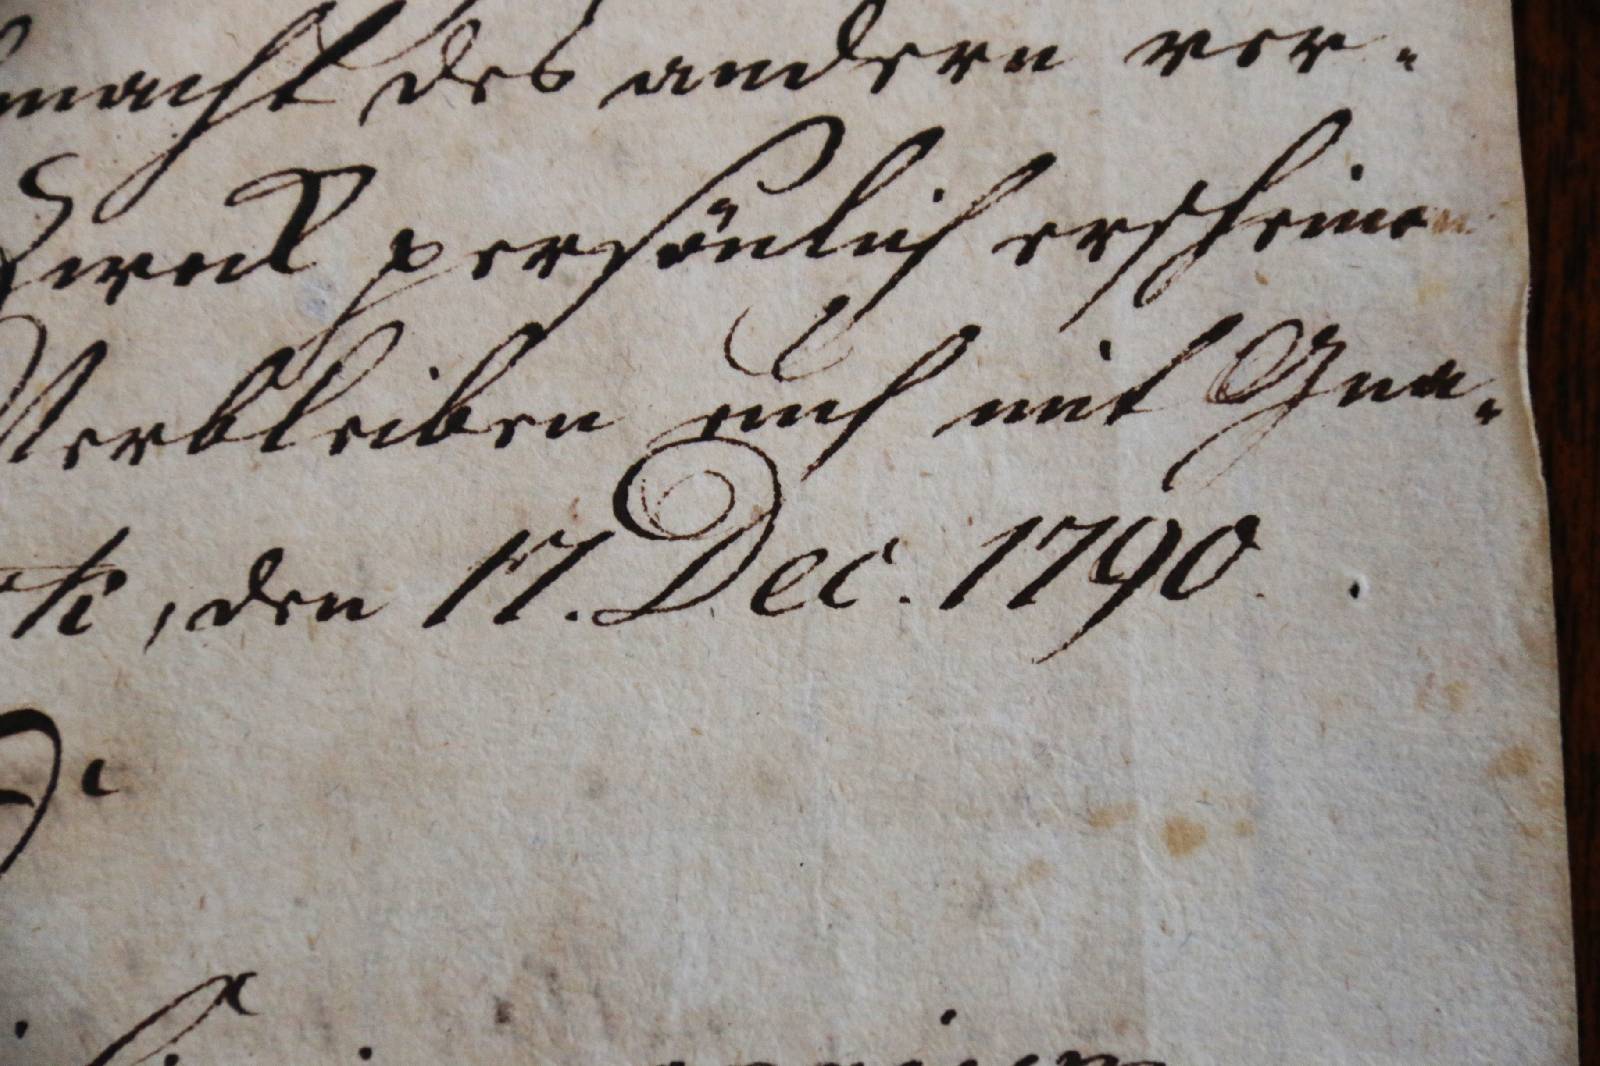 macht des andern ver-
Zweck persönlich erscheinen
Verbleiben euch mit Gna-
den 17. Dec. 1790.